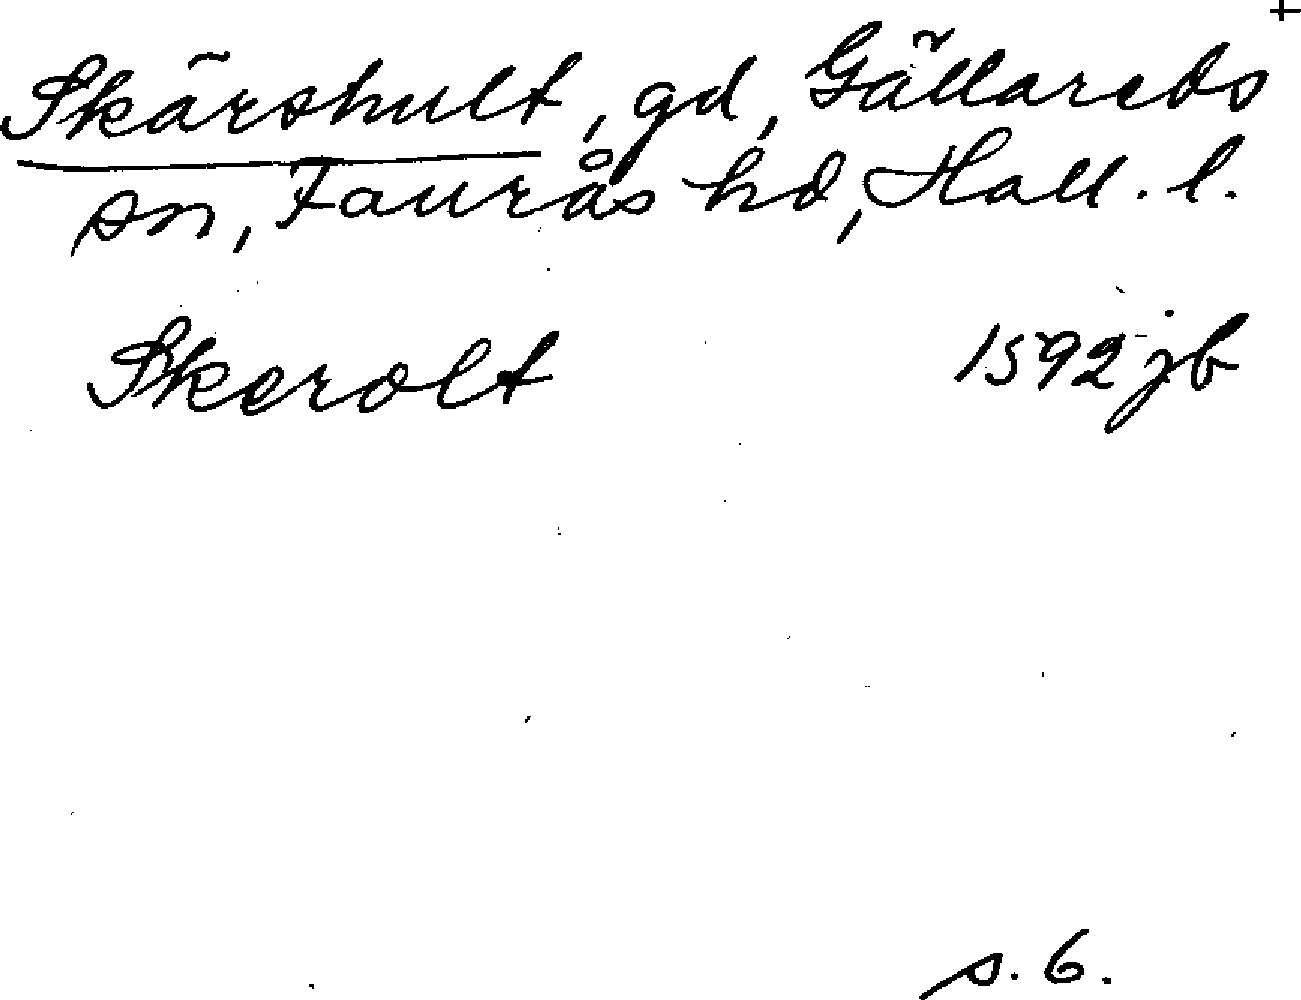 +
Skärshult, gd, Gällareds
sn, Faurås hd, Hall. l.
Skerolt 1592 jb
s. 6.